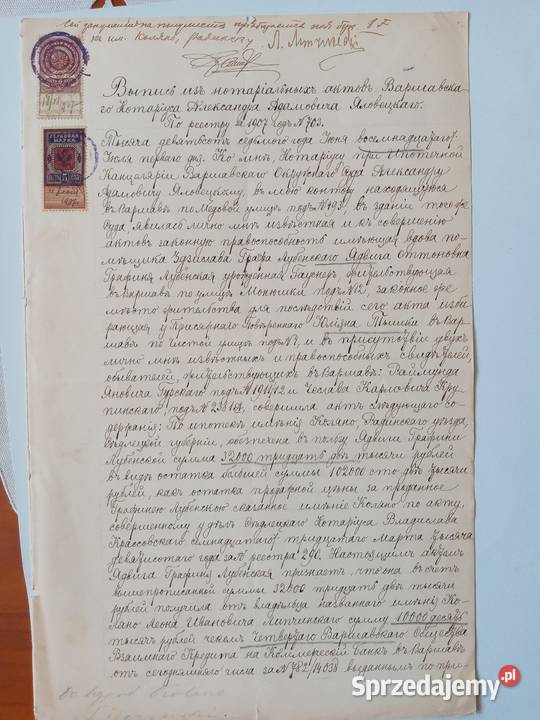 Л. Липинскій
Выпись изъ нотаріальныхъ актовъ Варшавска-
го Нотаріуса Александра Адамовича Яловецкаго.
По реестру за 1907 годъ № 703.
Тысяча девятьсотъ седьмого года Іюня восемнадцатаго/
Іюля перваго дня. Ко мнѣ, Нотаріусу при Ипотечной
Канцеляріи Варшавскаго Окружнаго Суда Александру
Адамовичу Яловецкому, въ мою контору находящуюся
въ Варшавѣ по Медовой улицѣ подъ №, въ зданіи того же
Суда, явилась лично мнѣ извѣстная и къ совершенію
актовъ законную правоспособность имѣющая вдова по-
мѣщика Здзислава Графа Лубенскаго Ядвига Оттоновна
Графиня Лубенская урожденная, жительствующая
въ Варшавѣ по улицѣ Монюшки подъ № 12, законное же
мѣсто жительства для послѣдствій сего акта изби-
рающая у Присяжнаго Повѣреннаго Юліяна въ Вар-
шавѣ по Чистой улицѣ подъ №, и въ присутствіи двухъ
лично мнѣ извѣстныхъ и правоспособныхъ свидѣтелей,
обывателей, жительствующихъ въ Варшавѣ: Раймунда
Яновича Гурскаго подъ № и Чеслава Карловича Кру-
пинскаго, подъ №, совершила актъ слѣдующаго со-
держанія: По ипотекѣ имѣнія Коляно, Радинскаго уѣзда,
Сѣдлецкой губерніи, обезпечена въ пользу Ядвиги Графини
Лубенской сумма 32000 тридцать двѣ тысячи рублей
въ видѣ остатка большей суммы 102000 сто двѣ тысячи
рублей, какъ остатка продажной цѣны за проданное
Графинею Лубенскою сказанное имѣніе Коляно по акту,
совершенному у Сѣдлецкаго Нотаріуса Владислава
Крассовскаго семнадцатаго/тридцатаго Марта тысяча
девятисотаго года за № реестра 290. Настоящимъ актомъ
Ядвига Графиня Лубенская признаетъ, что она въ счетъ
вышепрописанной суммы 32000 тридцать двѣ тысячи
рублей получила отъ владѣльца названнаго имѣнія Ко-
ляно Леона Ивановича Липинскаго сумму 10000 десять
тысячъ рублей чекомъ Четвертаго Варшавскаго Общества
Взаимнаго Кредита на Коммерческій Банкъ въ Варшавѣ
отъ сегодняшняго числа за № 782/14038 выданнымъ по при-
Sprzedajemy.pl